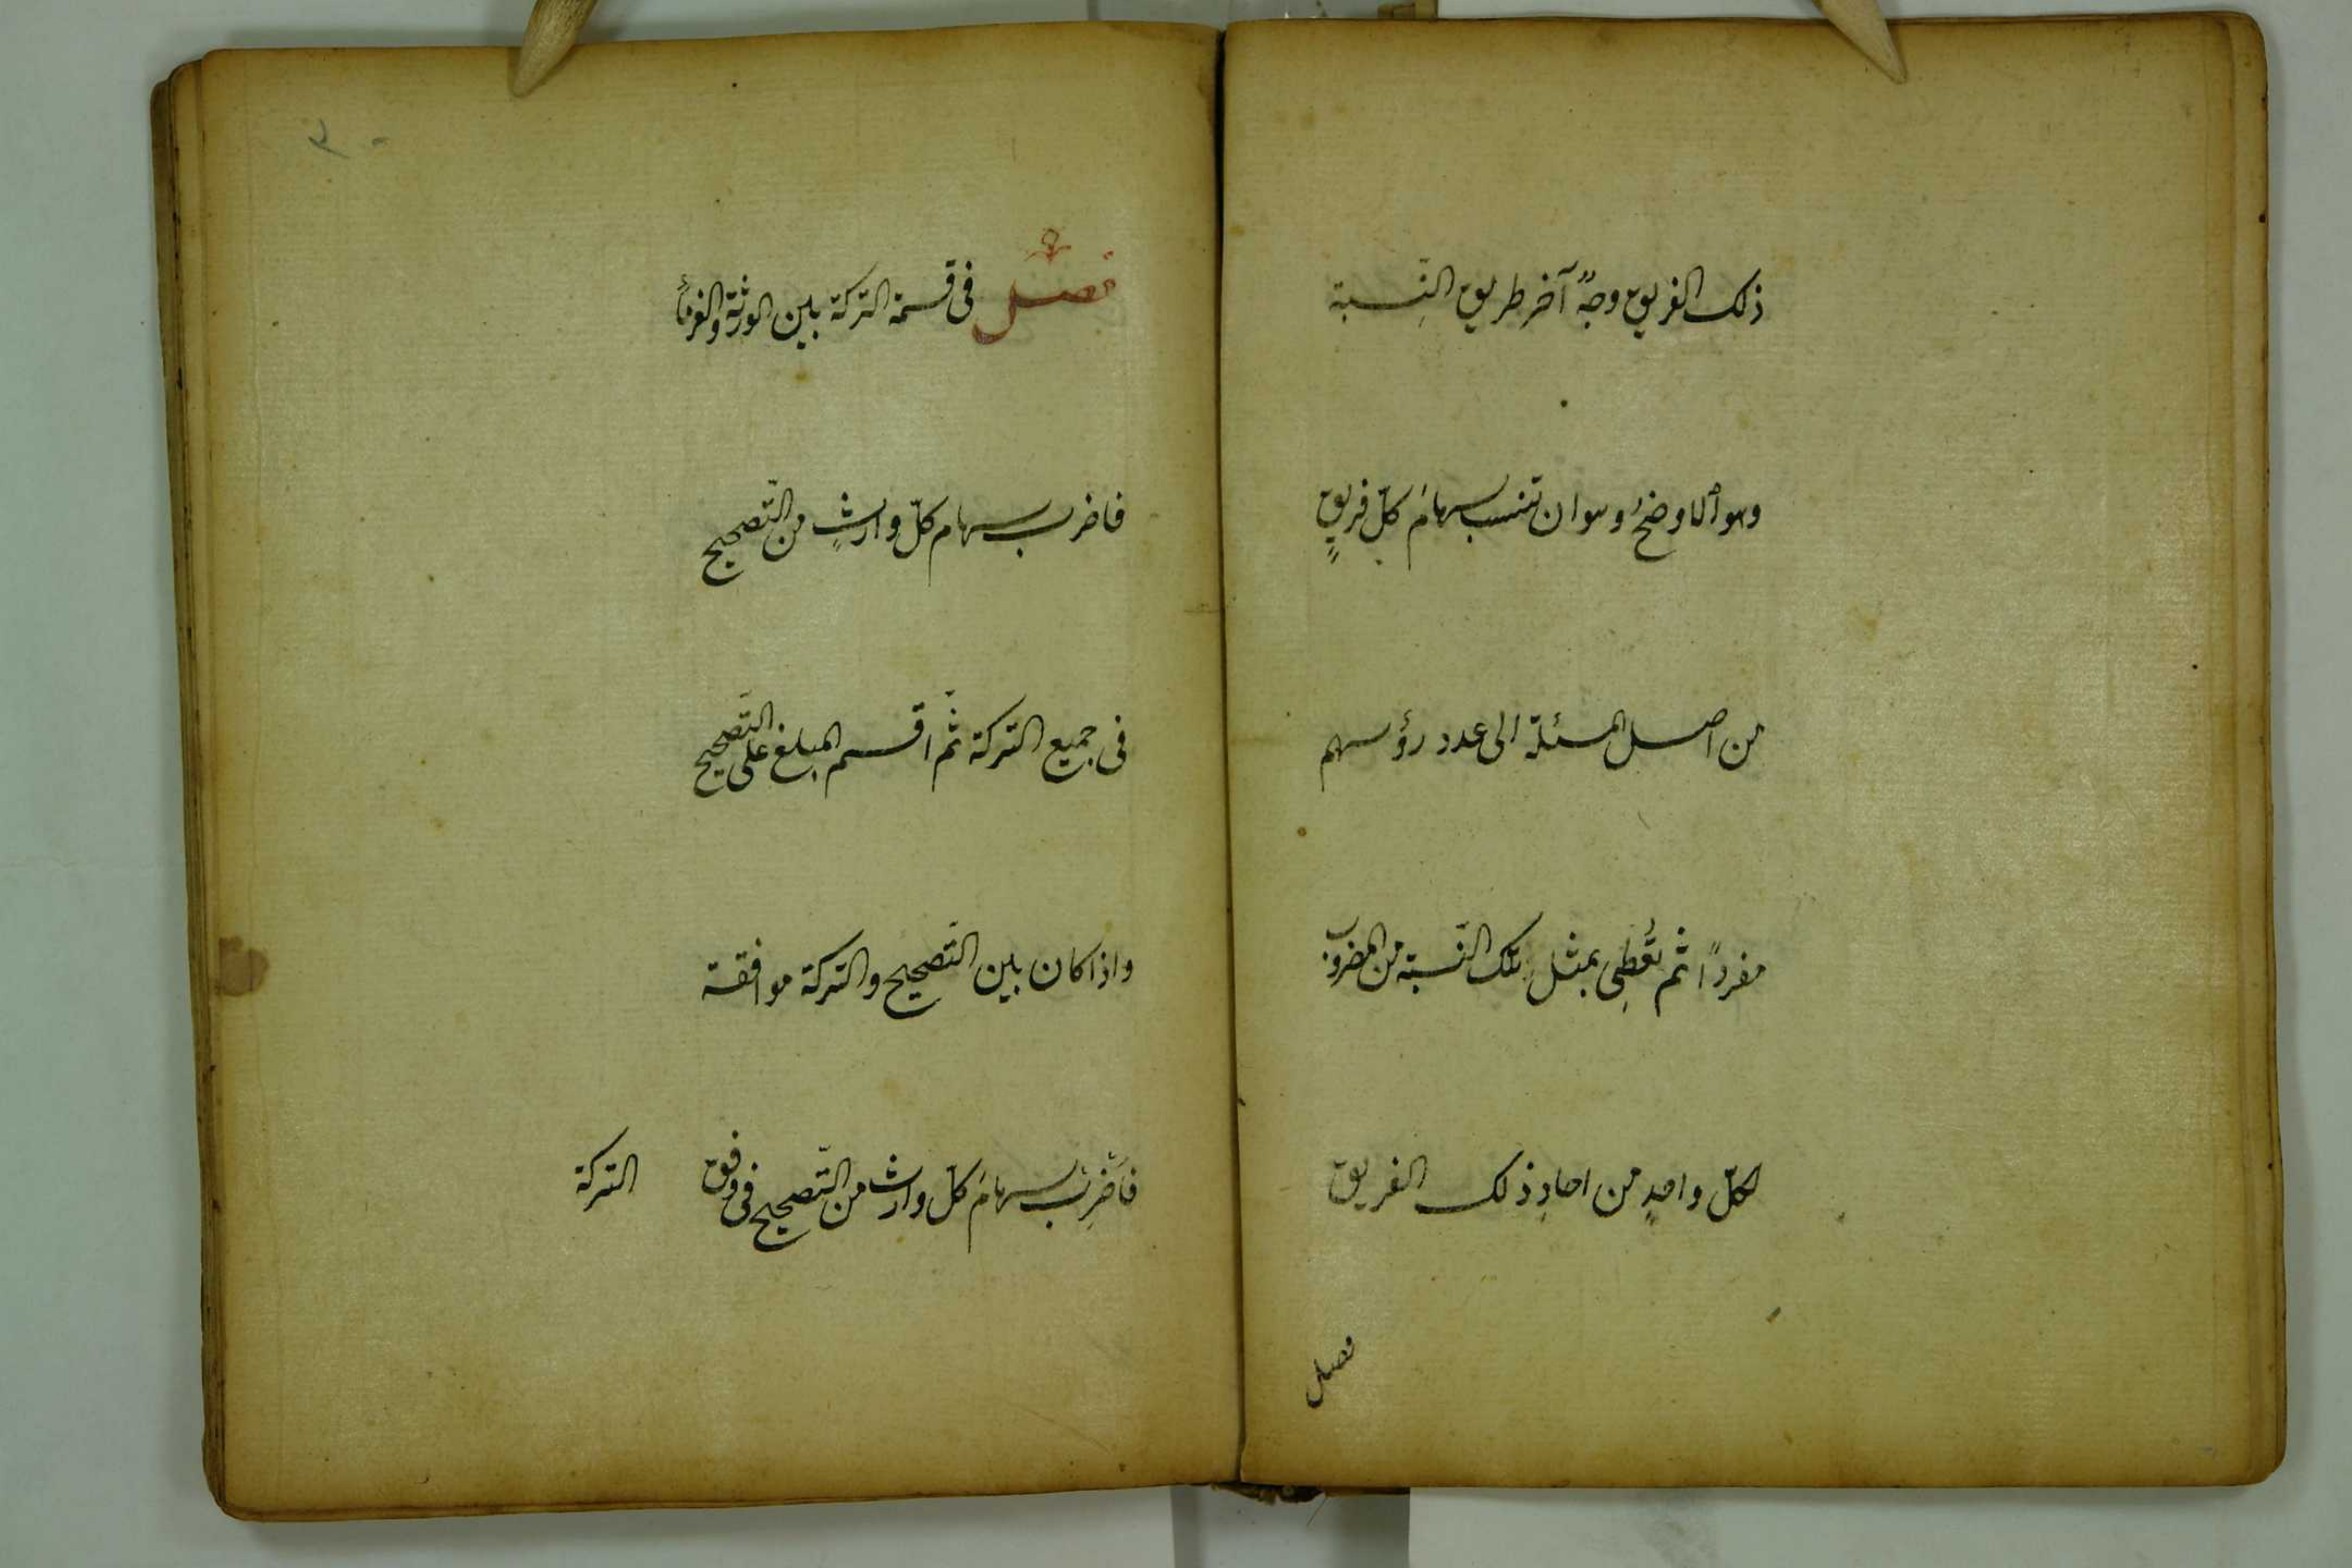 ذلك الفريق وجهٌ آخر طريق النِّسبة
وهو الاوضحُ وهو ان تنسب سهامَ كلّ فريقٍ
من اصل المسئلة الى عدد رؤسهم
مفرداً ثم تُعطِى بمثل تلك النّسبة من المضروب
لكلّ واحدٍ من احادِ ذلك الفريق
فصل
٣٠
فصل فى قسمة التركة بين الورثة والغرماء
فاضرب سهام كلّ وارثٍ من التّصحيح
فى جميع التركة ثمّ اقسم المبلغ على التّصحيح
واذا كان بين التّصحيح والتركة موافقة
فاَضْرِبْ سهامَ كلّ وارث من التّصحيح فى وفق التركة